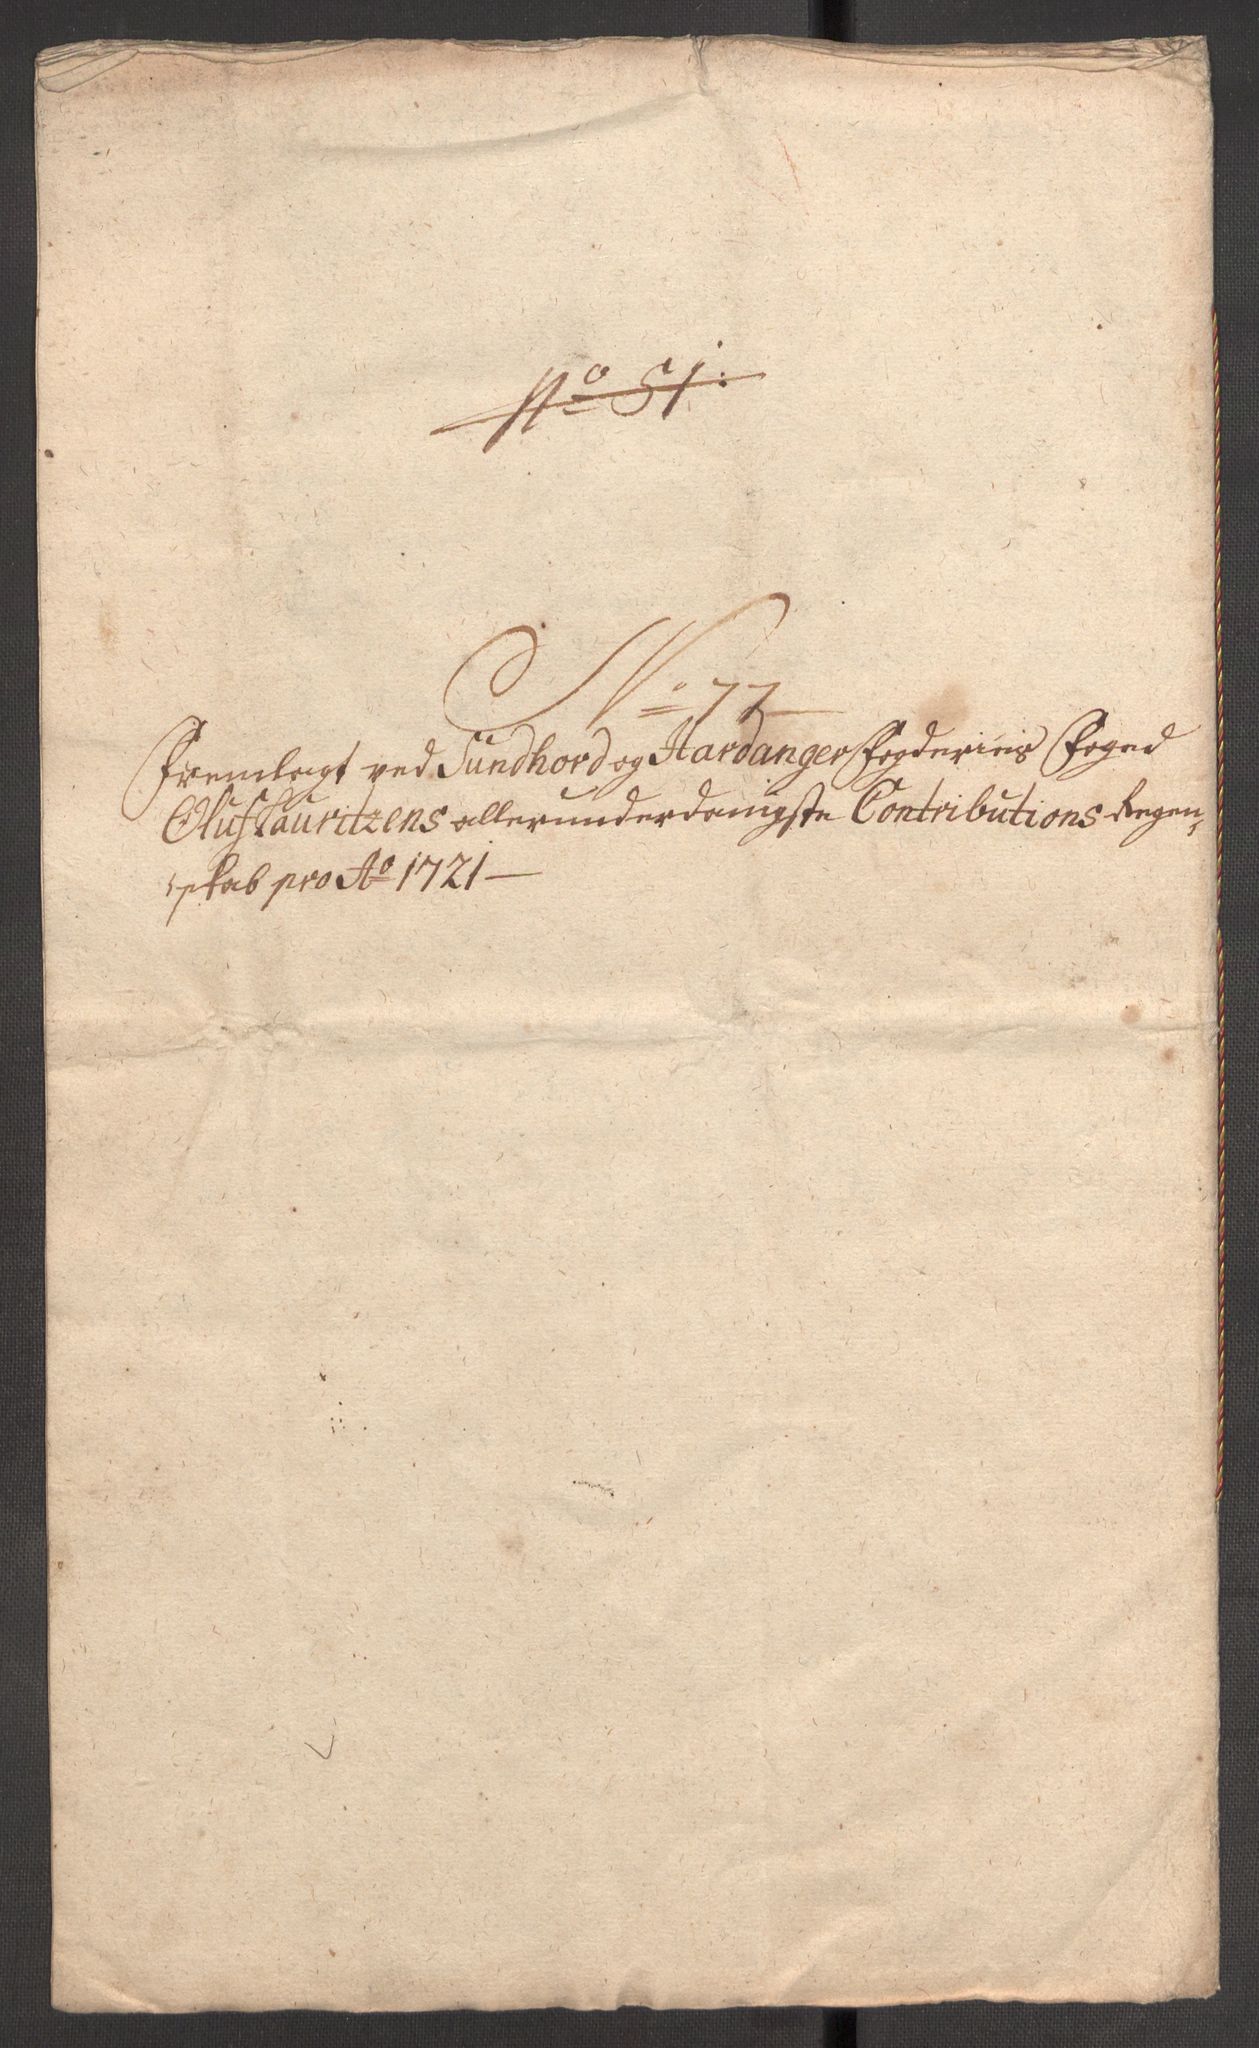 No 51:
No 77
Fremlagt ved Sundhord og Hardanger Fogderies Foged
Oluf Lauritzens allerunderdanigste Contributions Regen-
skab pro Ao 1721